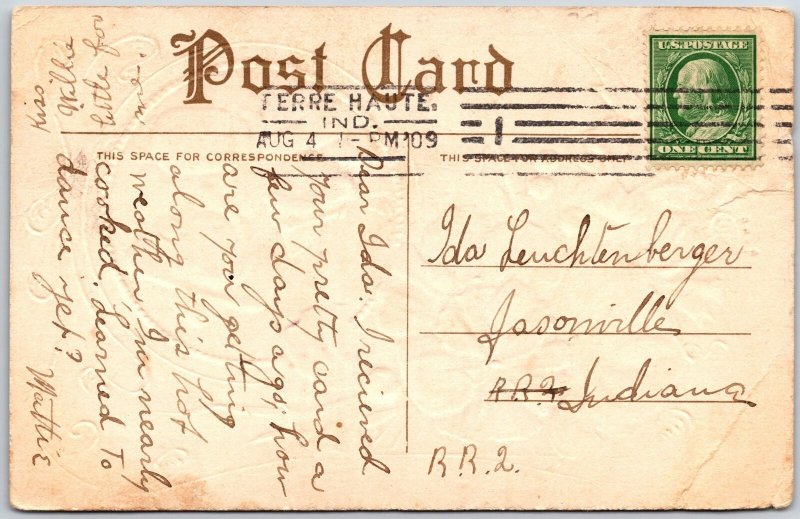 Post Card
TERRE HAUTE,
IND.
AUG 4 1-PM '09
1
U.S. POSTAGE
ONE CENT
THIS SPACE FOR CORRESPONDENCE
THIS SPACE FOR ADDRESS ONLY
Dear Ida: I recieved
your pretty card a
few days ago; how
are you getting
along this hot
weather I'm nearly
cooked. Learned to
dance yet?
Mattie
Ida Leuchtenberger
Jasonville
R.R.2. Indiana
R.R.2.
little for
Willie